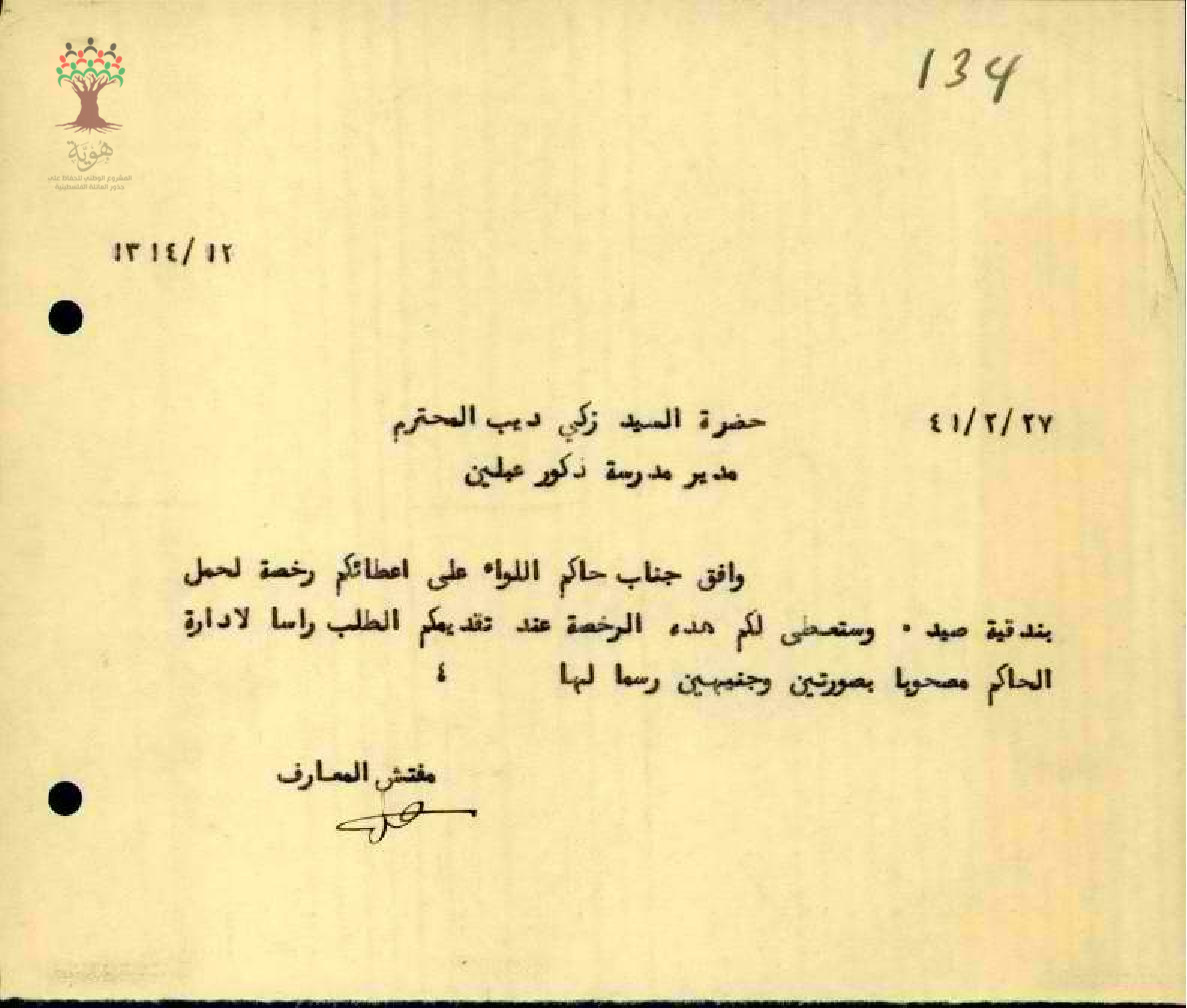 134
هوية
المشروع الوطني للحفاظ على
جذور العائلة الفلسطينية
١٣١٤/١٢
٤١/٢/٢٧
حضرة السيد زكي ديب المحترم
مدير مدرسة ذكور عبلين
وافق جناب حاكم اللواء على اعطائكم رخصة لحمل
بندقية صيد ٠ وستعطى لكم هذه الرخصة عند تقديمكم الطلب راسا لادارة
الحاكم مصحوبا بصورتين وجنيهين رسما لها ٤
مفتش المعارف